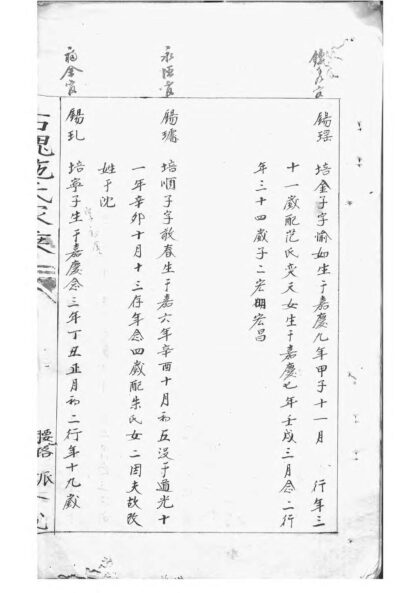 錫瑶
培金子字愉如生于嘉慶九年甲子十一月 行年三
十一歲配范氏奕天女生于嘉慶七年壬戌三月念二行
年三十四歲子二宏明宏昌
永恆官
錫璠
培順子字啟春生于嘉六年辛酉十月初五没于道光十
一年辛卯十月十三存年念四歲配朱氏女二因夫故改
姓于沈
福金官
錫玌
培寧子生于嘉慶念三年丁丑正月初二行年十九歲